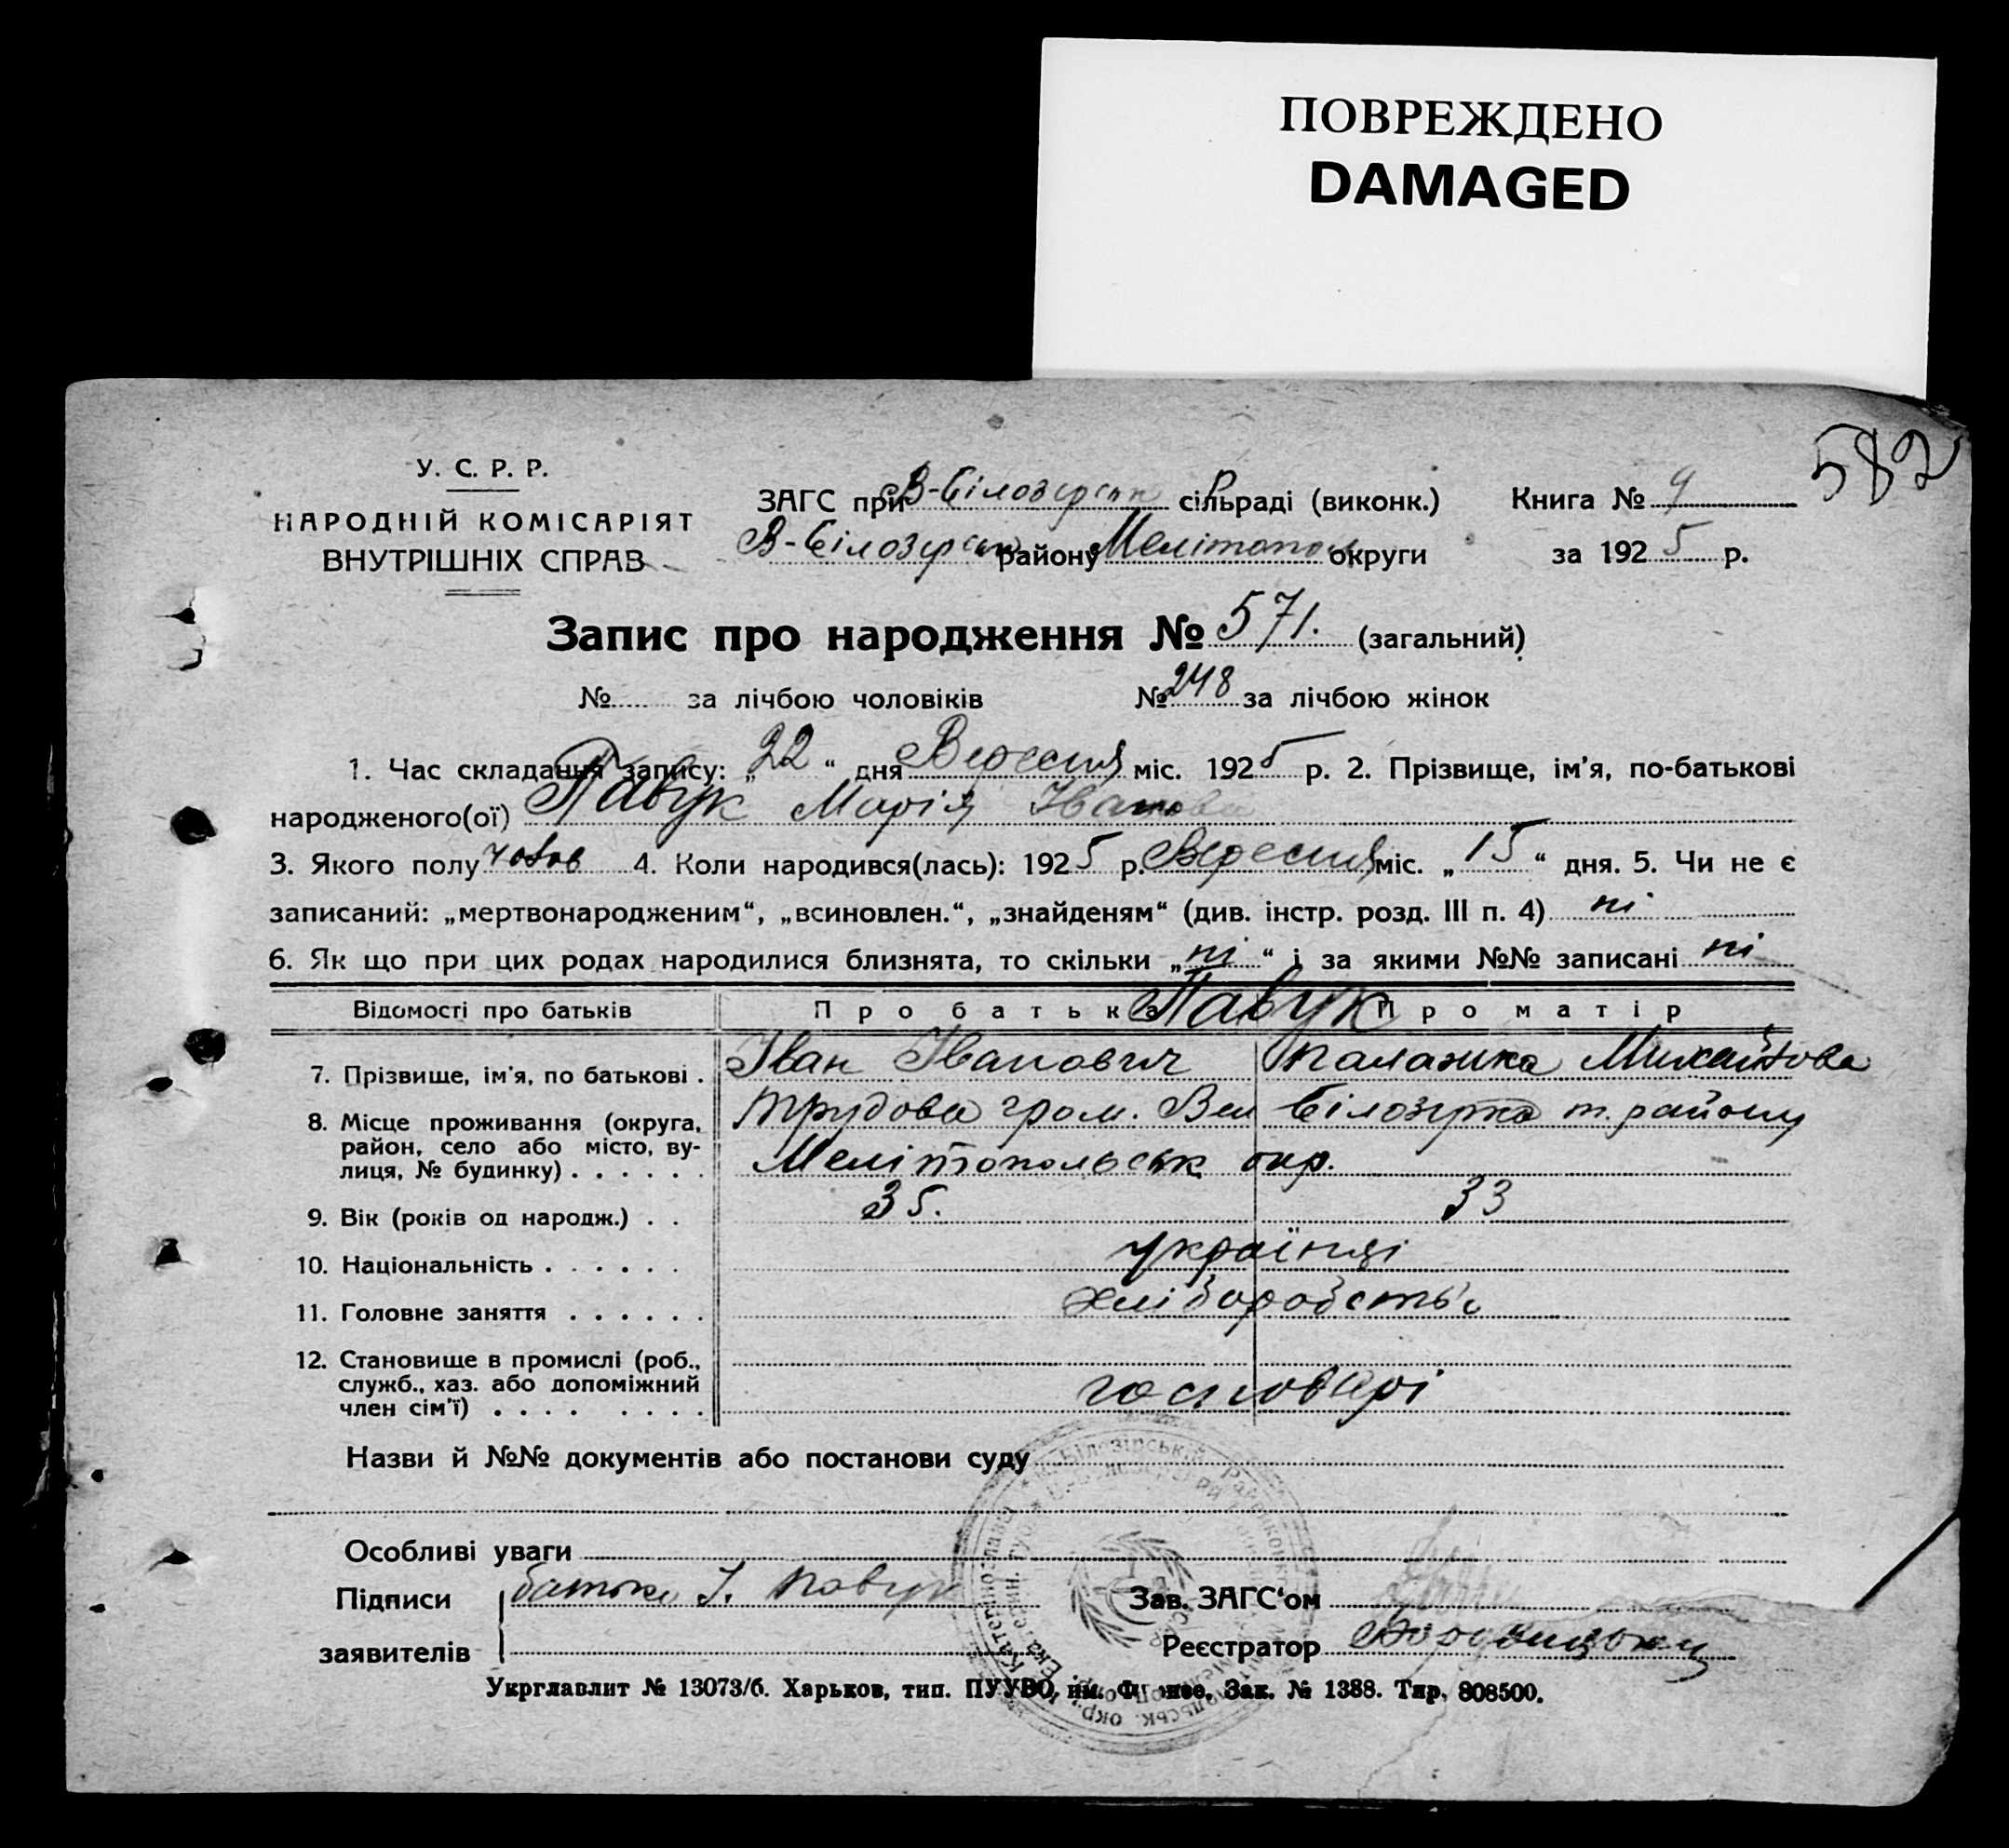 ПОВРЕЖДЕНО
DAMAGED
582
У. С. Р. Р.
НАРОДНІЙ КОМІСАРІЯТ
ВНУТРІШНІХ СПРАВ
ЗАГС при В-Білозерськ сільраді (виконк.) Книга № 9
В-Білозерськ району Мелітополь округи за 1925 р.
Запис про народження № 571. (загальний)
№ за лічбою чоловіків № 248 за лічбою жінок
1. Час складання запису: „22“ дня Вересня міс. 1925 р. 2. Прізвище, ім'я, по-батькові
народженого(ої) Павук Марія Іванова
3. Якого полу 4. Коли народився(лась): 1925 р. Вересня міс. „15“ дня. 5. Чи не є
записаний: „мертвонародженим“, „всиновлен.“, „знайденям“ (див. інстр. розд. III п. 4) ні
6. Як що при цих родах народилися близнята, то скільки „ні“ і за якими №№ записані ні
Відомості про батьків Про батьк Павук Про матір
7. Прізвище, ім'я, по батькові . Іван Іванович Палажка Михайлова
8. Місце проживання (округа, Трудова гром. Вел Білозірка т. району
район, село або місто, ву-
лиця, № будинку) . . . . . . Мелітопольськ окр.
9. Вік (років од народж.) . . 35. 33
10. Національність . . . . . . українці
11. Головне заняття . . . . . . хліборобств
12. Становище в промислі (роб.,
служб., хаз. або допоміжний господарі
член сім'ї) . . . . . . . .
Назви й №№ документів або постанови суду
Особливі уваги
Підписи батько І. Павук Зав. ЗАГС'ом
заявителів Реєстратор
Укрглавлит № 13073/б. Харьков, тип. ПУУВО, им. Фрунзе, Зак. № 1388. Тир. 808500.